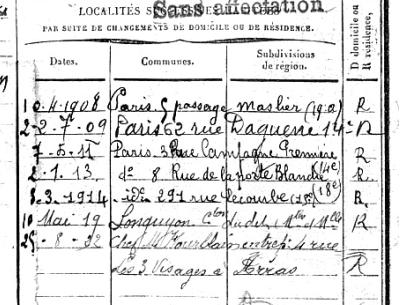 Sans affectation
LOCALITÉS S
PAR SUITE DE CHANGEMENTS DE DOMICILE OU DE RÉSIDENCE.
Dates. Communes. Subdivisions de région. D domicile ou R résidence.
10-4-1908 Paris 5 passage Maslier (19e) R
2-7-09 Paris 62 rue Daguerre 14e R
7-5-11 Paris 3 Rue Campagne Première R
2-1-13 do 8 Rue de la porte Blanche R
3-3-1914 idem 291 rue Lecourbe R
10 Mai 19 Longuyon R
25-8-32 Chez Mr 4 rue
Les 3 Visages à Arras R